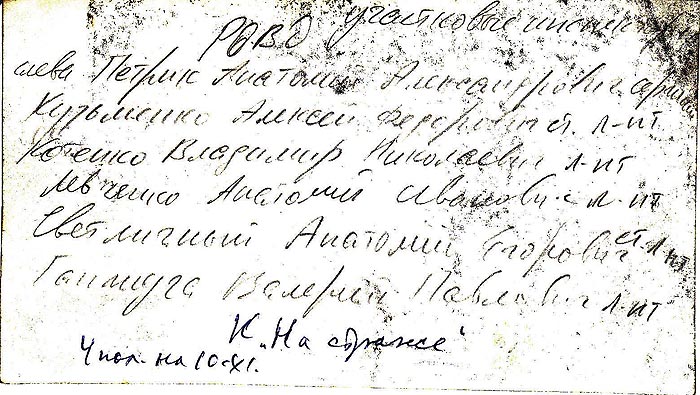 РОВД участковые инспектора
слева Петрик Анатолий Александрович
Кузьменко Алексей Федорович ст. л-нт
Котенко Владимир Николаевич л-нт
Левченко Анатолий Иванович л-нт
Светличный Анатолий Егорович ст. л-нт
Валерий Павлович л-нт
К "На страже"
на 10-XI.